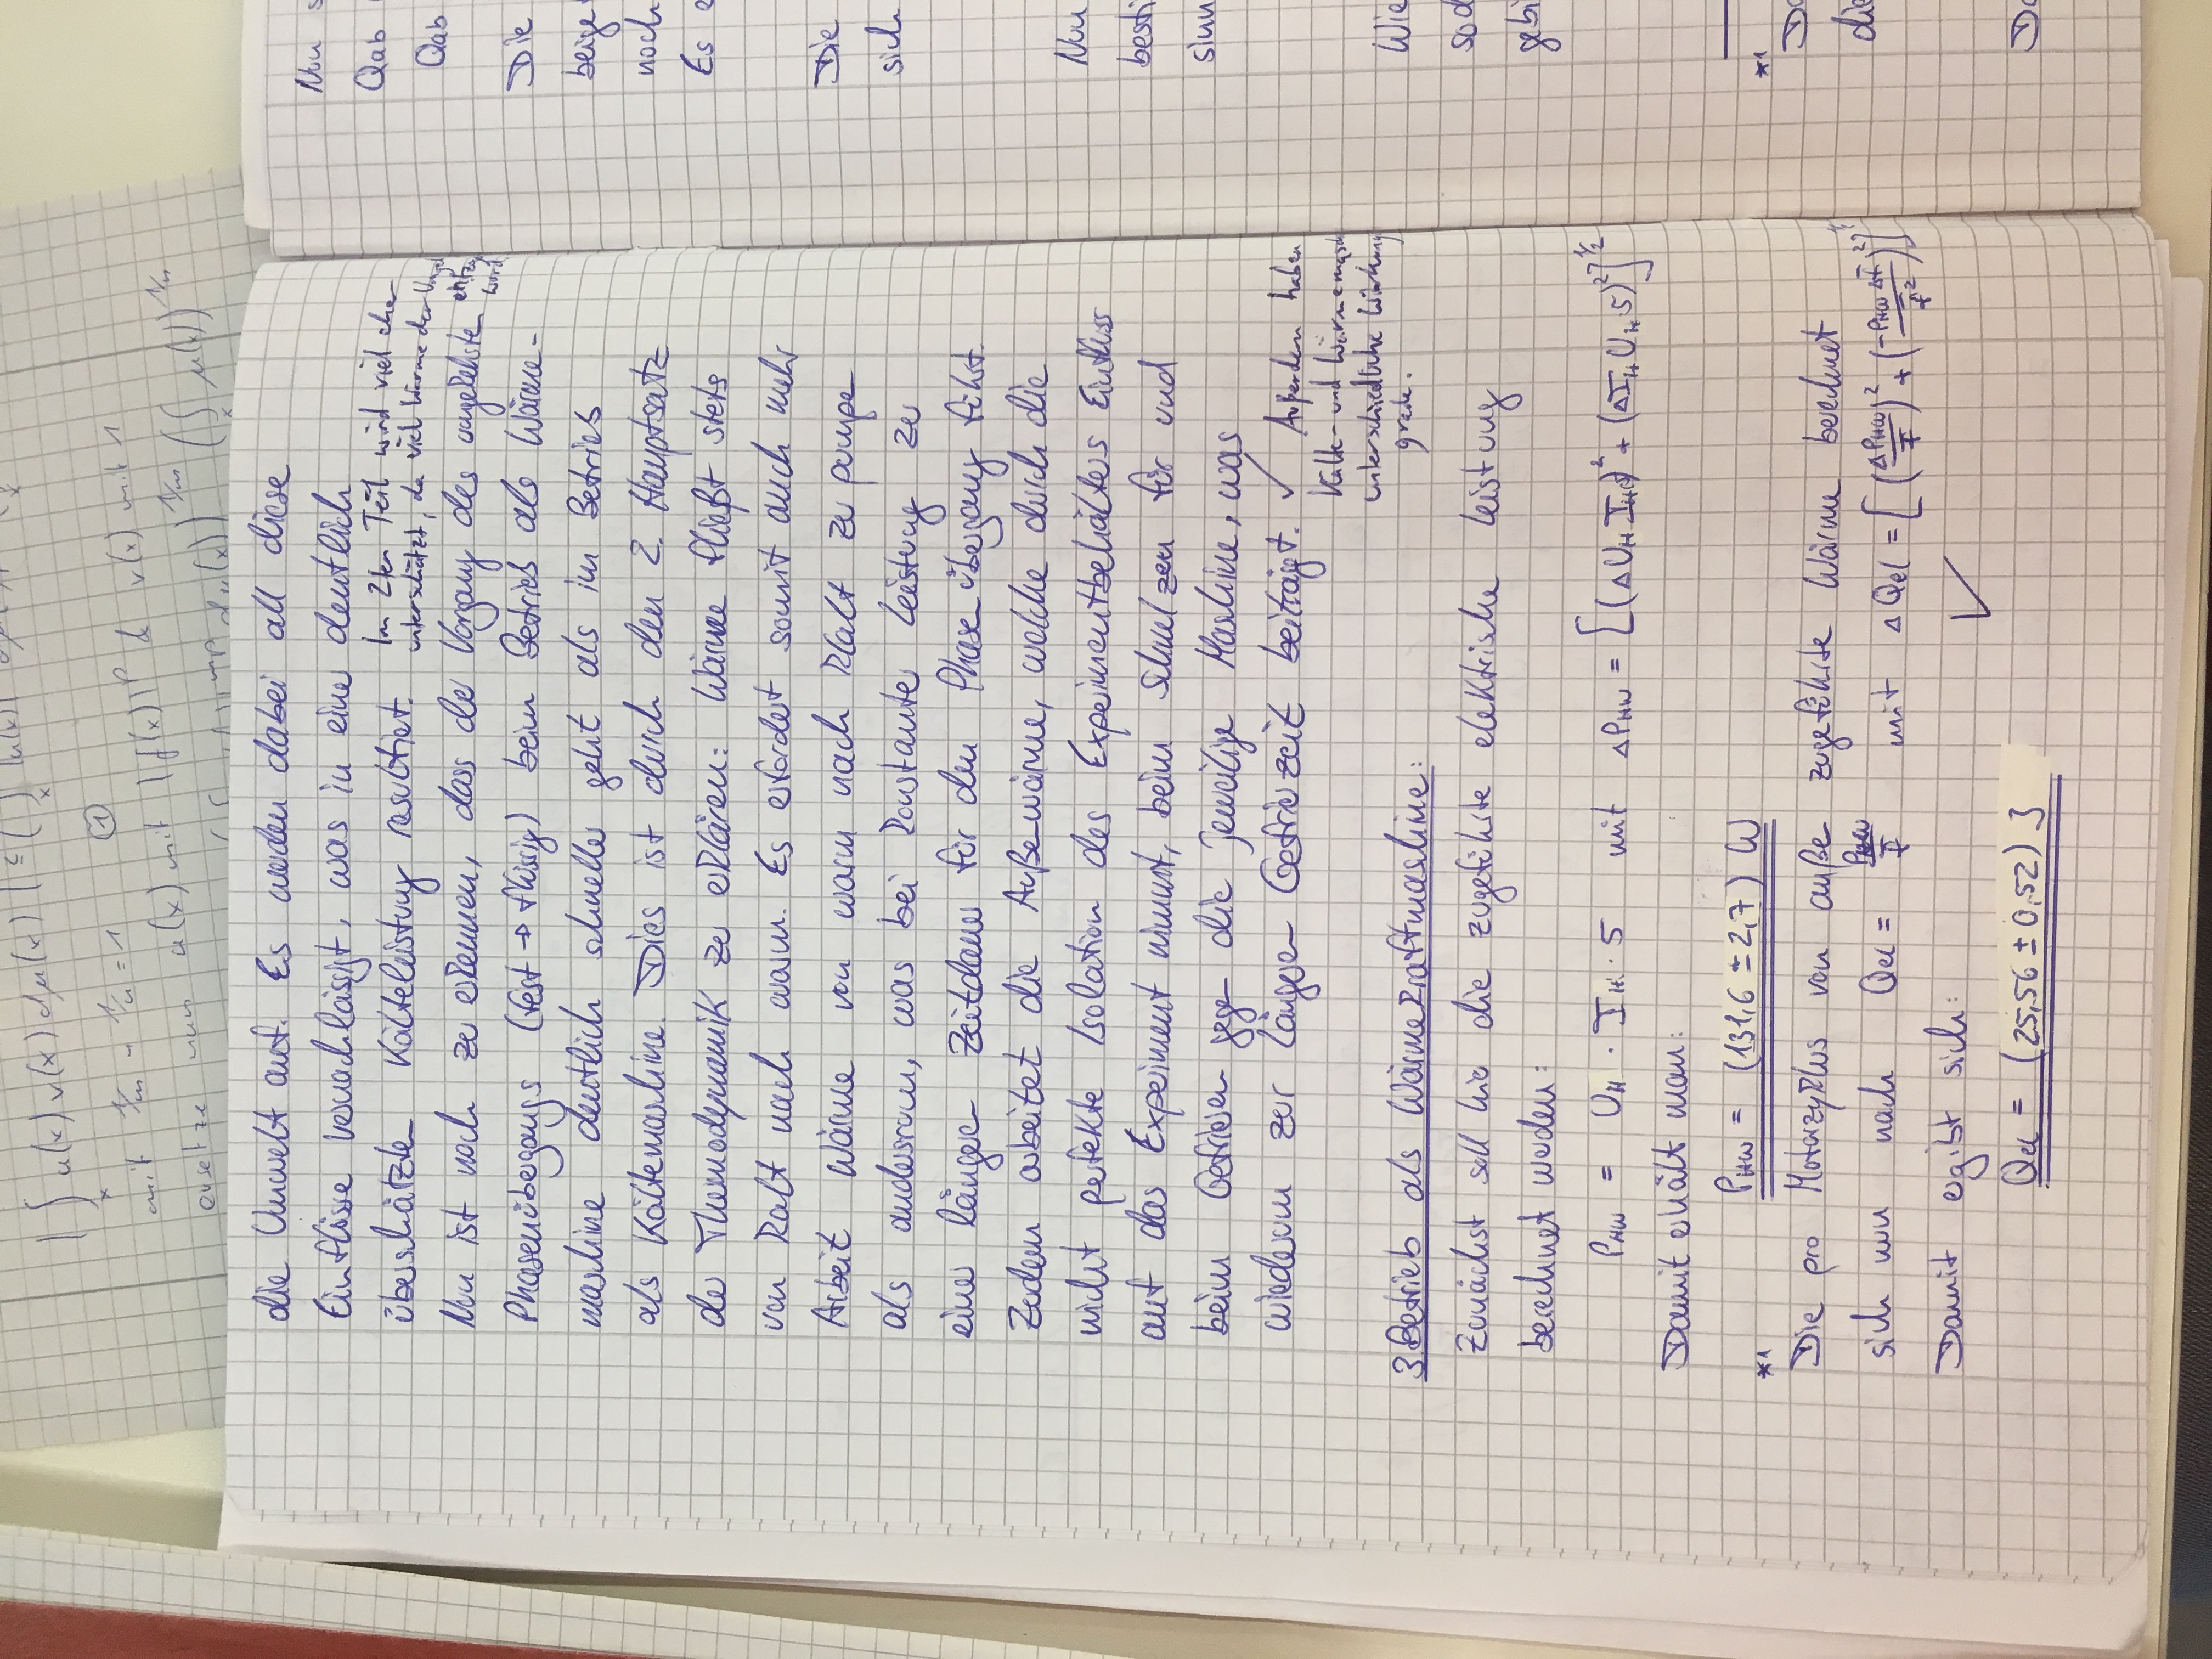 | ∫ u(x) v(x) dμ(x) | ≤ ( ∫ |u(x)|
x x
mit 1/m - 1/n = 1 ①
ersetze nun u(x) mit |f(x)|^p & v(x) mit 1
dμ(x))^1/m (∫ μ(x))^1/n
die Umwelt auf. Es werden dabei all diese
Einflüsse vernachlässigt, was in einer deutlich
überschätzten Kälteleistung resultiert. Im 2ten Teil wird viel eher
unterschätzt, da viel Wärme der
Nun ist noch zu erkennen, dass der Vorgang des umgekehrten
wird.
Phasenübergangs (fest → flüssig) beim Betrieb als Wärme-
maschine deutlich schneller geht als im Betrieb
als Kältemaschine. Dies ist durch den 2. Hauptsatz
der Thermodynamik zu erklären: Wärme fließt stets
von kalt nach warm. Es erfordert somit auch mehr
Arbeit Wärme von warm nach kalt zu pumpen
als andersrum, was bei konstanter Leistung zu
einer längeren Zeitdauer für den Phasenübergang führt.
Zudem arbeitet die Außenwärme, welche durch die
nicht perfekte Isolation des Experimentbehälters Einfluss
auf das Experiment nimmt, beim Schmelzen für und
beim Gefrieren gegen die jeweilige Maschine, was
wiederum zur längeren Gefrierzeit beiträgt. ✓ Außerdem haben
Kälte- und Wärmemasch
unterschiedliche Wirkung
grade.
3 Betrieb als Wärmekraftmaschine:
Zunächst soll hier die zugeführte elektrische Leistung
berechnet werden:
P_HW = U_H · I_H · 5 mit ΔP_HW = [(ΔU_H I_H 5)² + (ΔI_H U_H 5)²]^1/2
Damit erhält man:
P_HW = (131,6 ± 2,7) W
*1
Die pro Motorzyklus von außen zugeführte Wärme berechnet
sich nun nach Q_el = P_HW/f̄ mit ΔQ_el = [(ΔP_HW/f̄)² + (-P_HW Δf̄/f̄²)²]
Damit ergibt sich: ✓
Q_el = (25,56 ± 0,52) J
Nun s
Qab
Qab
Die
beige
noch
Es
Die
sich
Nun
besti
sinn
Wie
sod
gebi
*1
Da
die
Da